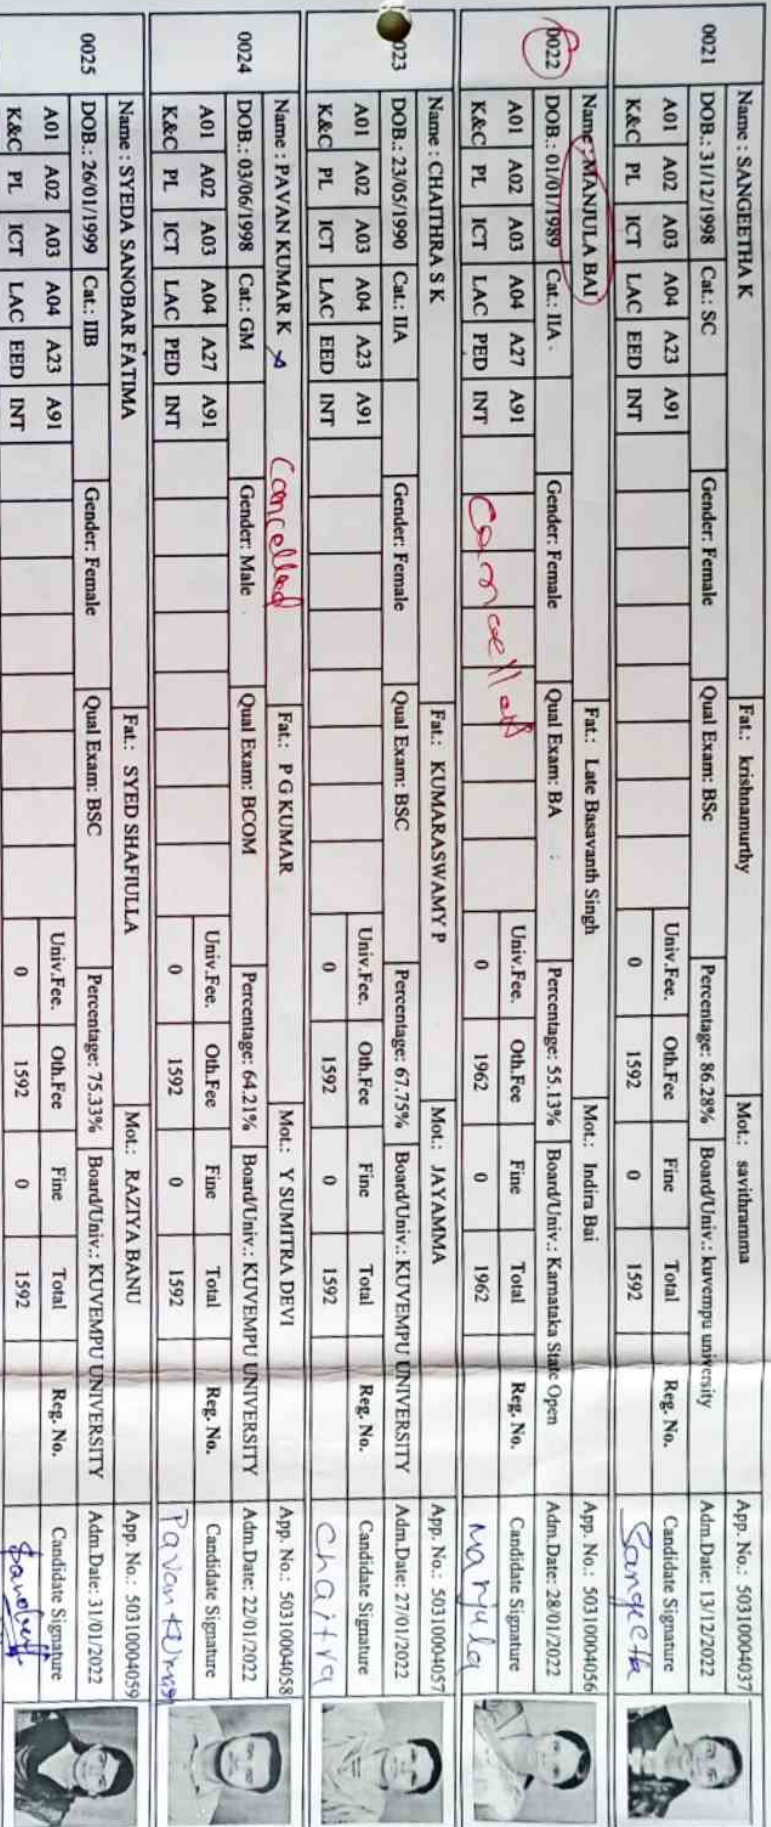 0021
Name : SANGEETHA K Fat.: krishnamurthy Mot.: savithramma App. No.: 50310004037
DOB.: 31/12/1998 Cat.: SC Gender: Female Qual Exam: BSc Percentage: 86.28% Board/Univ.: kuvempu university Adm.Date: 13/12/2022
A01 A02 A03 A04 A23 A91 Univ.Fee. Oth.Fee Fine Total Reg. No. Candidate Signature
K&C PL ICT LAC EED INT 0 1592 0 1592 Sangeetha
0022
Name : MANJULA BAI Fat.: Late Basavanth Singh Mot.: Indira Bai App. No.: 50310004056
DOB.: 01/01/1989 Cat.: IIA Gender: Female Qual Exam: BA Percentage: 55.13% Board/Univ.: Karnataka State Open Adm.Date: 28/01/2022
A01 A02 A03 A04 A27 A91 Univ.Fee. Oth.Fee Fine Total Reg. No. Candidate Signature
K&C PL ICT LAC PED INT Cancelled 0 1962 0 1962 Manjula
023
Name : CHAITHRA S K Fat.: KUMARASWAMY P Mot.: JAYAMMA App. No.: 50310004057
DOB.: 23/05/1990 Cat.: IIA Gender: Female Qual Exam: BSC Percentage: 67.75% Board/Univ.: KUVEMPU UNIVERSITY Adm.Date: 27/01/2022
A01 A02 A03 A04 A23 A91 Univ.Fee. Oth.Fee Fine Total Reg. No. Candidate Signature
K&C PL ICT LAC EED INT 0 1592 0 1592 Chaitra
0024
Name : PAVAN KUMAR K Cancelled Fat.: P G KUMAR Mot.: Y SUMITRA DEVI App. No.: 50310004058
DOB.: 03/06/1998 Cat.: GM Gender: Male Qual Exam: BCOM Percentage: 64.21% Board/Univ.: KUVEMPU UNIVERSITY Adm.Date: 22/01/2022
A01 A02 A03 A04 A27 A91 Univ.Fee. Oth.Fee Fine Total Reg. No. Candidate Signature
K&C PL ICT LAC PED INT 0 1592 0 1592 Pavan Kumar
0025
Name : SYEDA SANOBAR FATIMA Fat.: SYED SHAFIULLA Mot.: RAZIYA BANU App. No.: 50310004059
DOB.: 26/01/1999 Cat.: IIB Gender: Female Qual Exam: BSC Percentage: 75.33% Board/Univ.: KUVEMPU UNIVERSITY Adm.Date: 31/01/2022
A01 A02 A03 A04 A23 A91 Univ.Fee. Oth.Fee Fine Total Reg. No. Candidate Signature
K&C PL ICT LAC EED INT 0 1592 0 1592